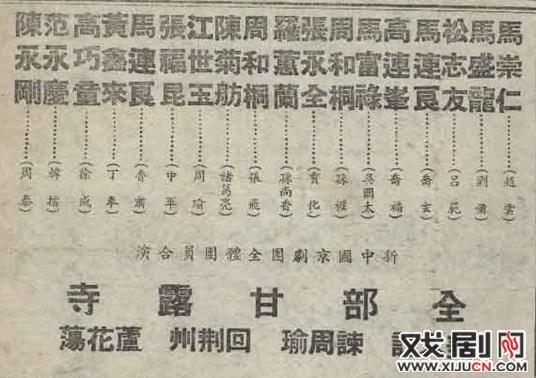 馬崇仁………(趙雲)
馬盛龍………(劉備)
松志友………(呂範)
馬連良………(喬玄)
高連峯………(喬福)
馬富祿………(吳國太)
周和桐………(孫權)
張永全………(賈化)
羅蕙蘭………(孫尚香)
周和桐………(張飛)
陳菊舫………(諸葛亮)
江世玉………(周瑜)
張福昆………(中軍)
馬連良………(魯肅)
黃鑫來………(丁奉)
高巧童………(徐成)
范永慶………(韓擋)
陳永剛………(周泰)
新中國京劇團全體團員合演
全部甘露寺
諫周瑜 回荆州 蘆花蕩
戏剧网
www.XIJUCN.COM